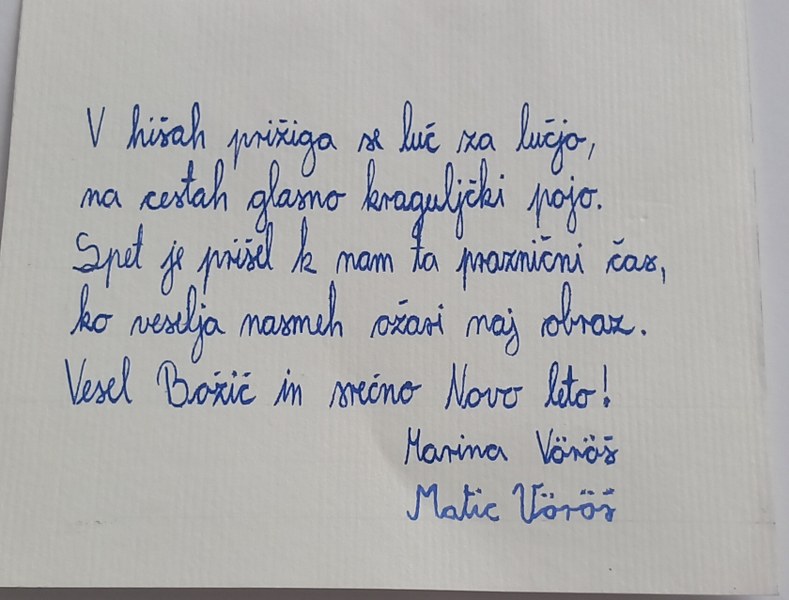 V hišah prižiga se luč za lučjo,
na cestah glasno kraguljčki pojo.
Spet je prišel k nam ta praznični čas,
ko veselja nasmeh ožari naj obraz.
Vesel Božič in srečno Novo leto!
Marina Vöröš
Matic Vöröš